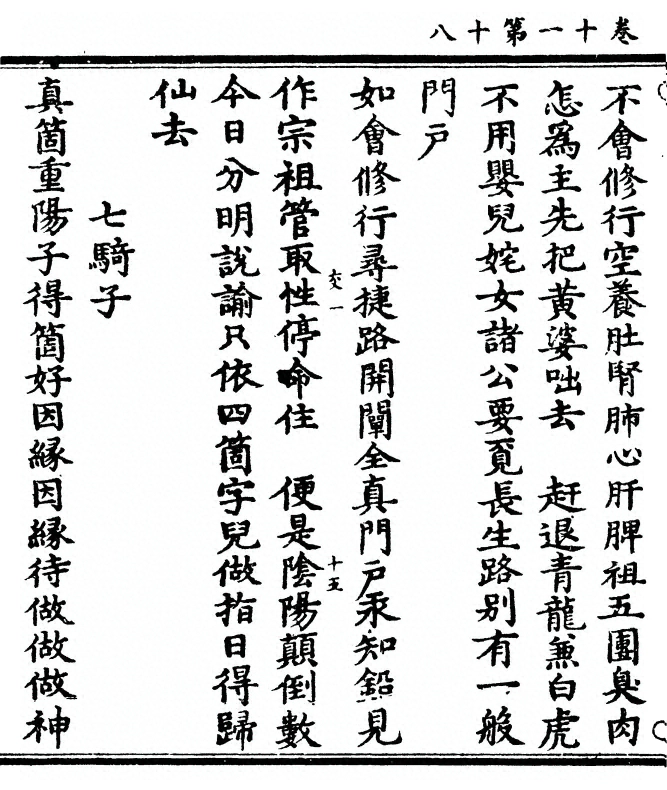 卷十一第十八
不會修行空養肚腎肺心肝脾祖五團臭肉
怎爲主先把黃婆咄去　赶退青龍兼白虎
不用嬰兒姹女諸公要覓長生路别有一般
門户
如會修行尋捷路開闡全真門户汞知鉛見
作宗祖管取性停命住　便是陰陽顛倒數
交一
十五
今日分明說諭只依四箇字兒做指日得歸
仙去
七騎子
真箇重陽子得箇好因緣因緣待做做做神